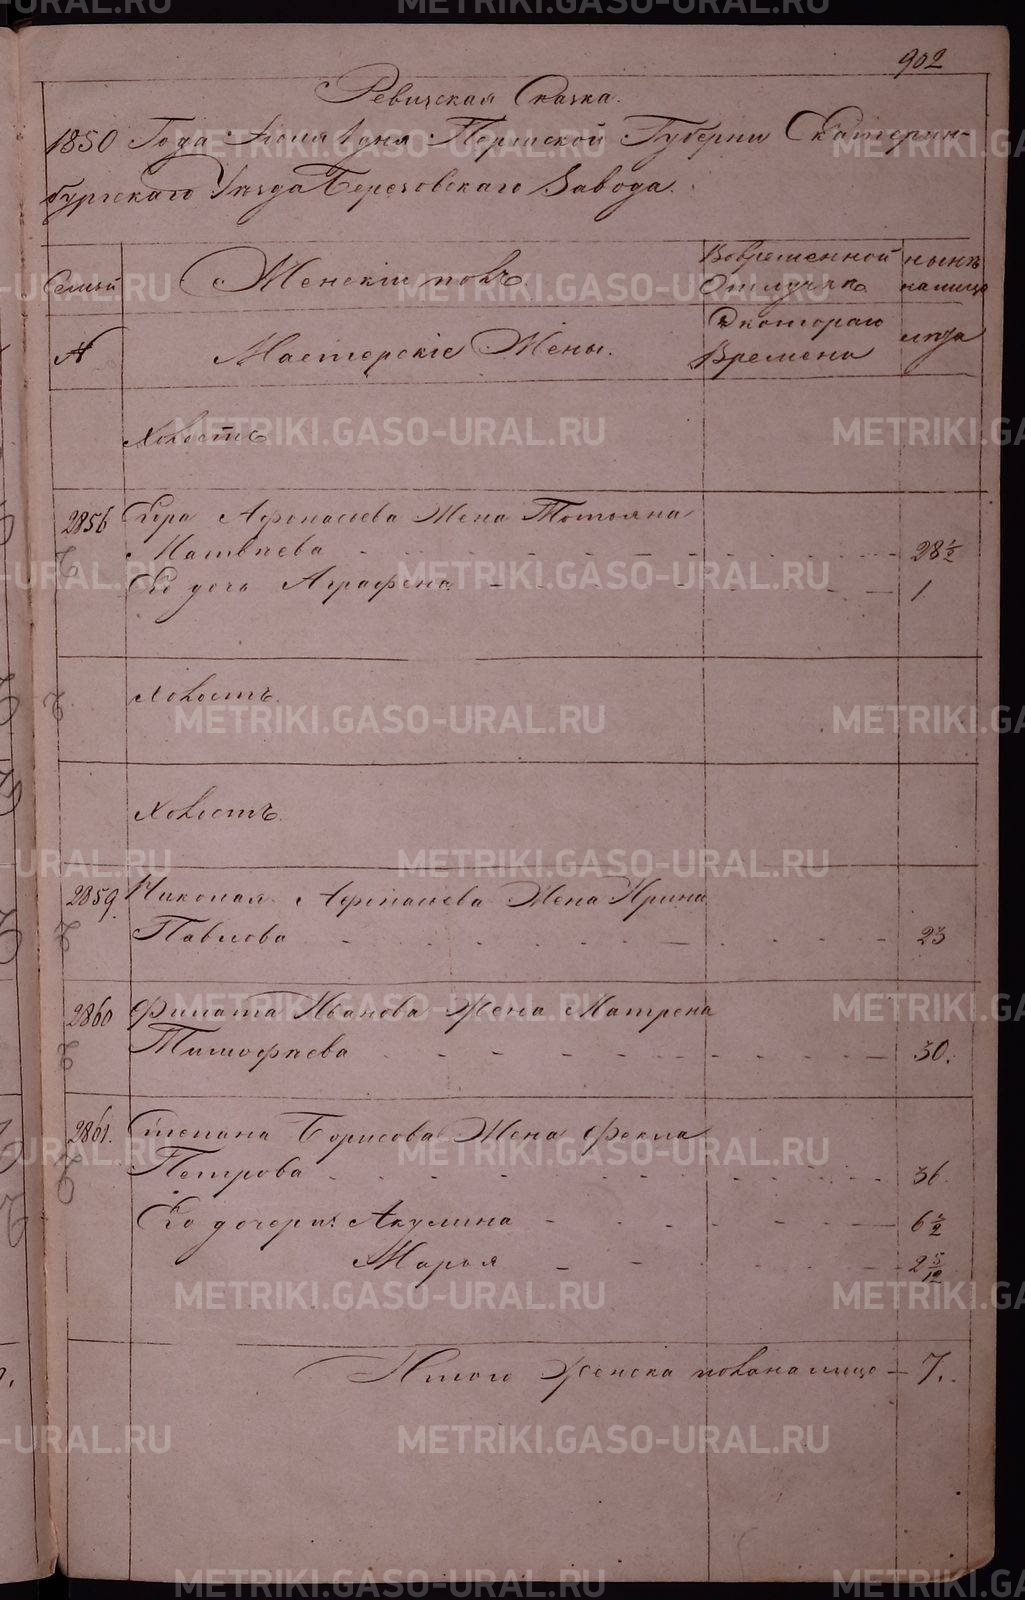 902
Ревизская Сказка.
1850 Года Іюля 1 дня Пермской Губерніи Екатерин-
бургскаго Уѣзда Березовскаго Завода.
Семьи
Женскій полъ.
Во временной
отлучкѣ
нынѣ
на лицо
№
Мастерскіе Жены.
Съ котораго
времени
лѣта
Холостъ
2856
Егора Афонасьева Жена Татьяна
Матвѣева 28 1/2
Его дочь Аграфена 1
Холостъ.
Холостъ.
2859.
Николая Афонасьева Жена Ирина
Павлова 23
2860
Филата Иванова Жена Матрена
Тимофѣева 30.
2861.
Степана Борисова Жена Фекла
Петрова 36
Его дочери: Акулина 6 1/2
Марья 2 5/12
Итого Женска пола на лицо 7.
METRIKI.GASO-URAL.RU